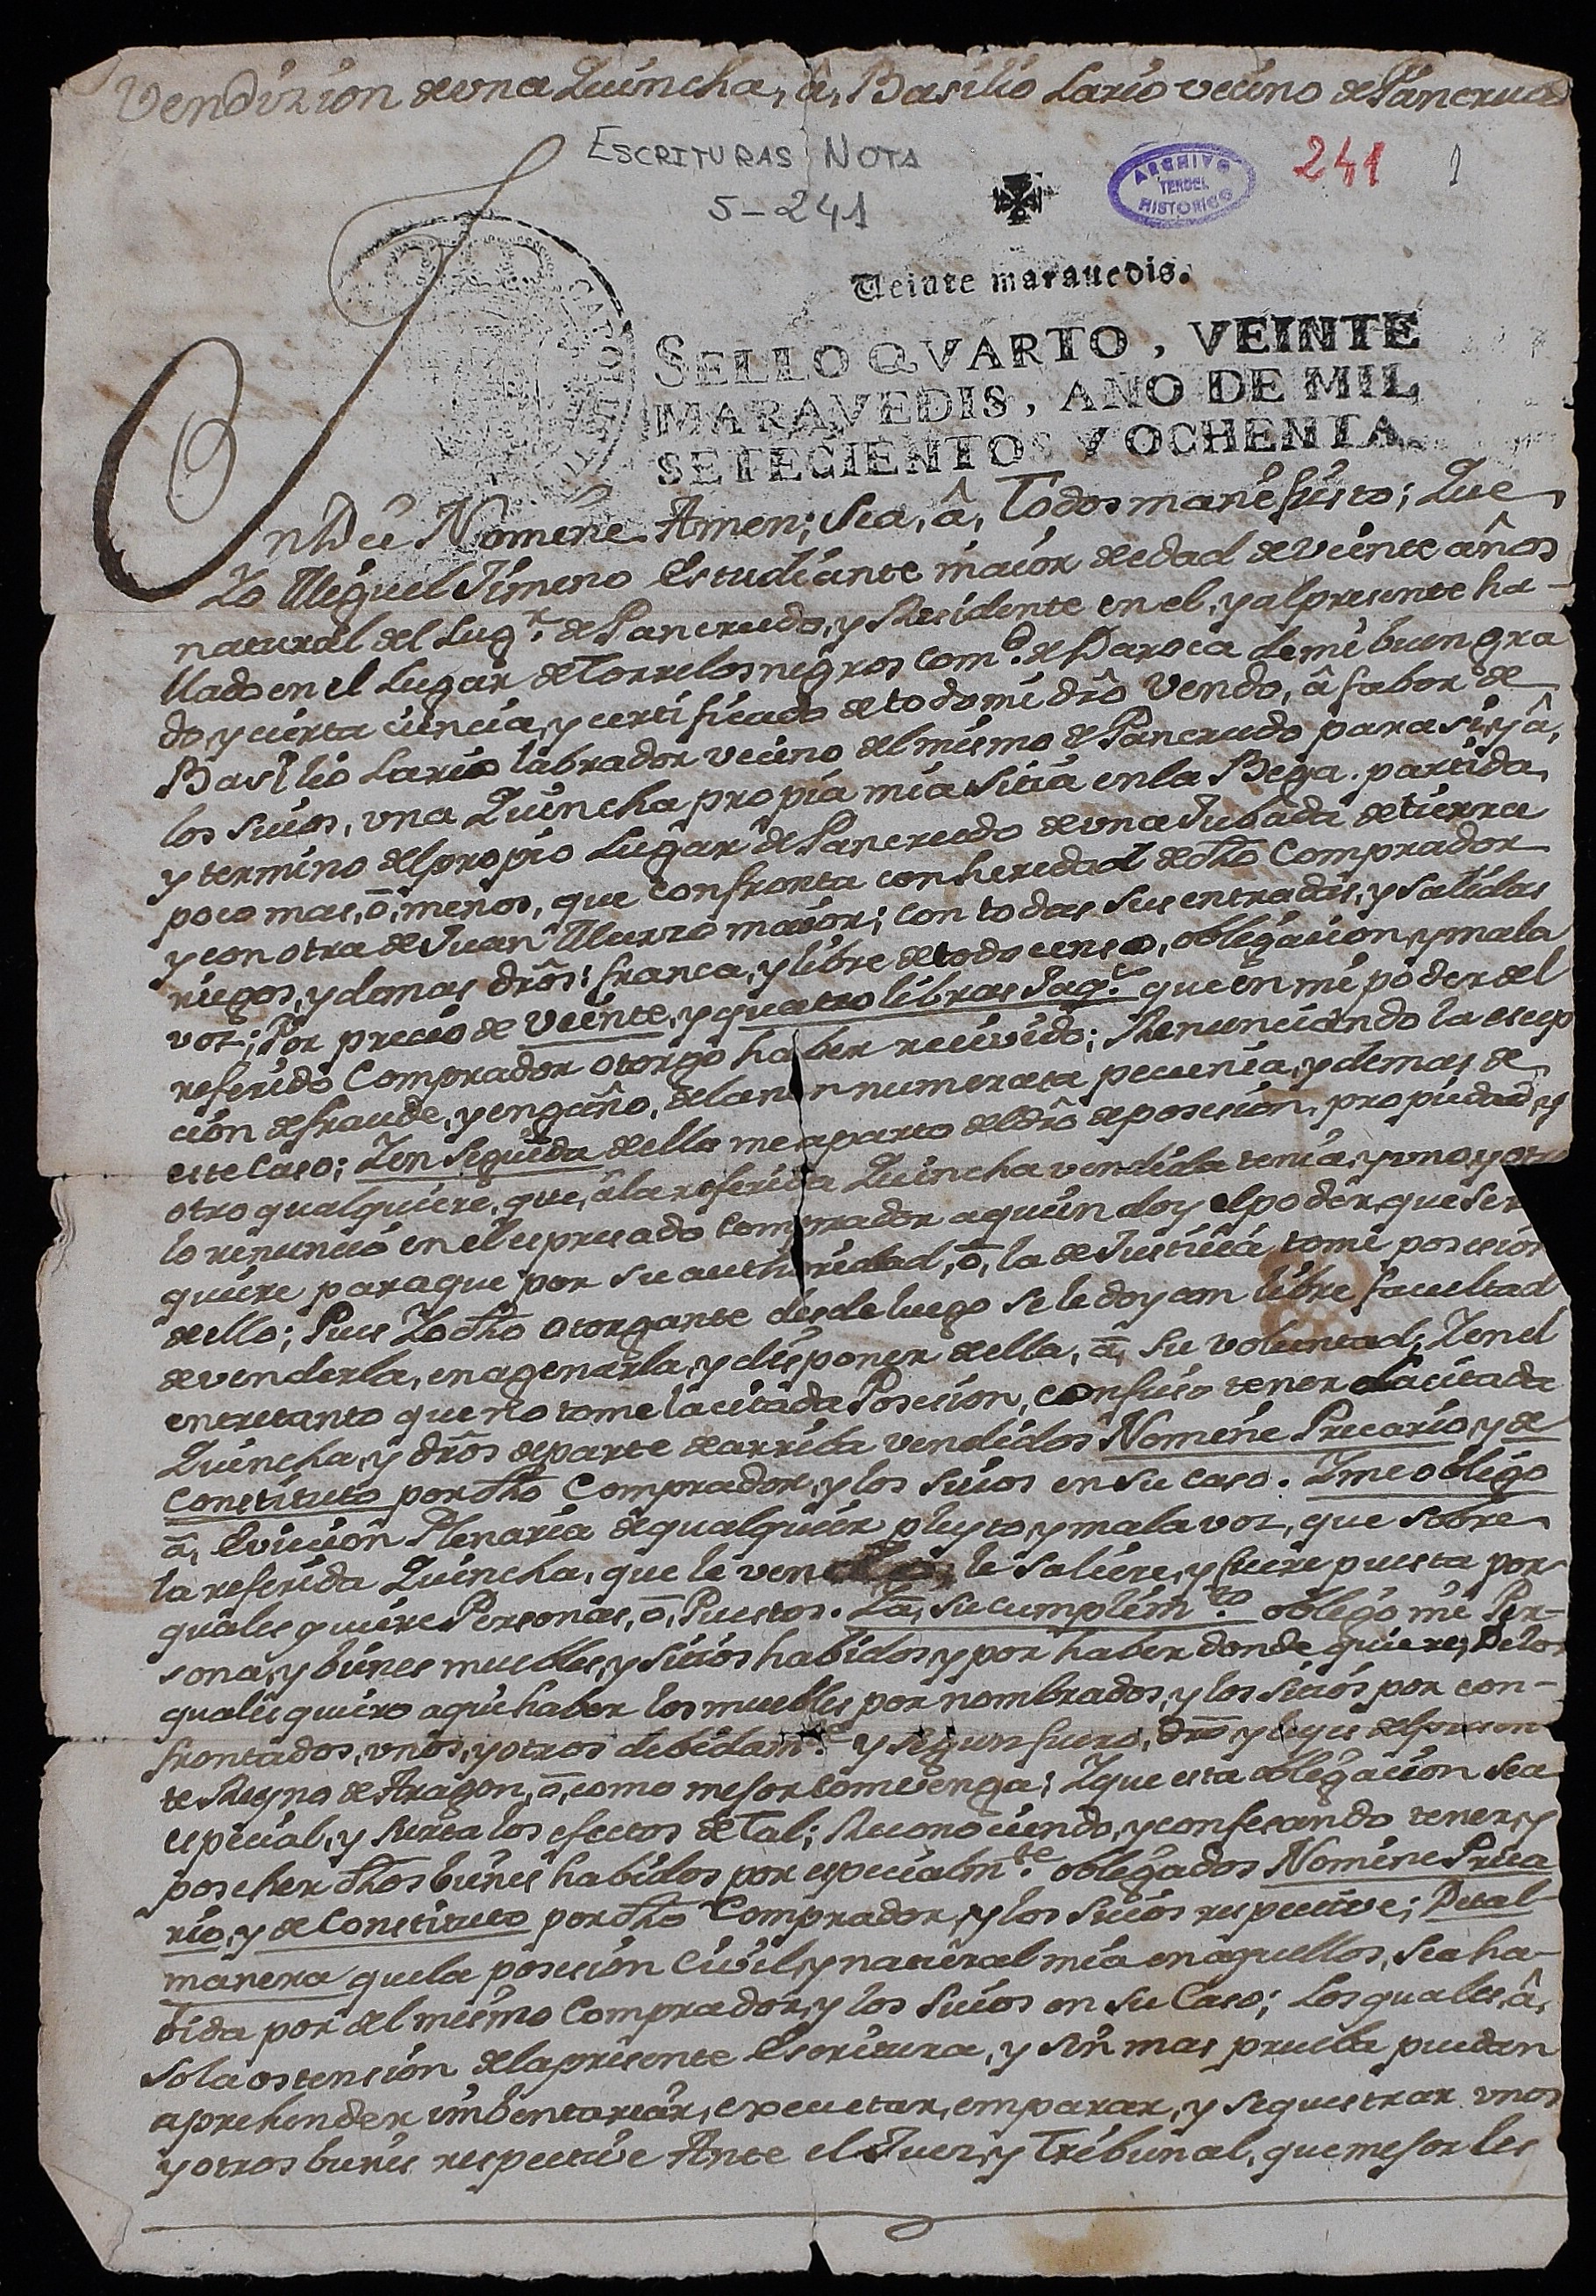 Vendizion de vna Quincha, â, Basilio Lario vecino de Pancrudo
ESCRITURAS NOTA
5-241
ARCHIVO
TERUEL
HISTORICO
241
1
Veinte maravedis.
SELLO QVARTO, VEINTE
MARAVEDIS, AÑO DE MIL
SETECIENTOS Y OCHENTA.
In Dei Nomine Amen; Sea, â, Todos manifiesto; Que
Yo Miguel Jimeno Estudiante maior de edad de Veinte años
natural del Lugr. de Pancrudo, y Residente en el, y al presente ha-
llado en el Lugar de Torrelosnegros Comd. de Daroca de mi buen gra
do, y cierta ciencia, y certificado de todo mi dro Vendo, â fabor de
Basilio Lario labrador vecino del mismo de Pancrudo para si, y â,
los suios, vna Quincha propia mia sitia en la Bega. partida
y termino del propio Lugar de Pancrudo de vna Jubada de tierra
poco mas, ô, menos, que confronta con heredad de dho Comprador
y con otra de Juan Murzo maior; con todas sus entradas, y salidas
riegos, y demas dros; franca, y libre de todo censo, obligacion, y mala
voz; Por precio de Veinte, y quatro libras Jaqs. que en mi poder del
referido Comprador otorgo haber recivido; Renunciando la escep
cion de fraude, y engaño, de la non numerata pecunia, y demas de
este caso; Y en seguida de ello me aparto del dro de posesion, propiedad, y
otro qualquiere, que, â la referida Quincha vendida tenia, y vno, y otro
lo renuncio en el espresado Comprador a quien doy el poder, que se re
quiere para que por su authoridad, ô, la de Justicia tome posesion
de ello; Pues Yo dho otorgante desde luego se le doy con libre facultad
de venderla, enagenarla, y disponer de ella, â, su voluntad; Y en el
entretanto que no tome la citada Posesion, confieso tener la citada
Quincha, y dros de parte de arriba vendidos Nomine Precario, y de
Constituto por dho Comprador, y los suios en su caso. Y me obligo
â, Eviccion Plenaria de qualquier pleyto, y mala voz, que sobre
la referida Quincha, que le vendo, le saliere, y fuere puesta por
quales quiere Personas, ô, Puestos. Y â, su cumplimto. obligo mi Per-
sona, y bienes muebles, y sitios habidos, y por haber donde quiere; De los
quales quiero aqui haber los muebles por nombrados, y los sitios por con-
frontados, vnos, y otros debidamte. y segun fuero, dro y leyes del presen
te Reyno de Aragon, ô, como mejor combenga; Y que esta obligacion sea
especial, y surta los efectos de Tal; Reconociendo, y confesando tener, y
poseher dhos bienes habidos por especialmte. obligados Nomine Preca
rio, y de Constituto por dho Comprador, y los suios respective; De tal
manera que la posesion Civil, y natural mia en aquellos, sea ha-
bida por del mismo Comprador, y los suios en su Caso; Los quales, â,
sola ostension de la presente Escritura, y sin mas prueba puedan
aprehender imbentariar, executar, emparar, y sequestrar vnos
y otros bienes respective Ante el Juez, y Tribunal, que mejor les